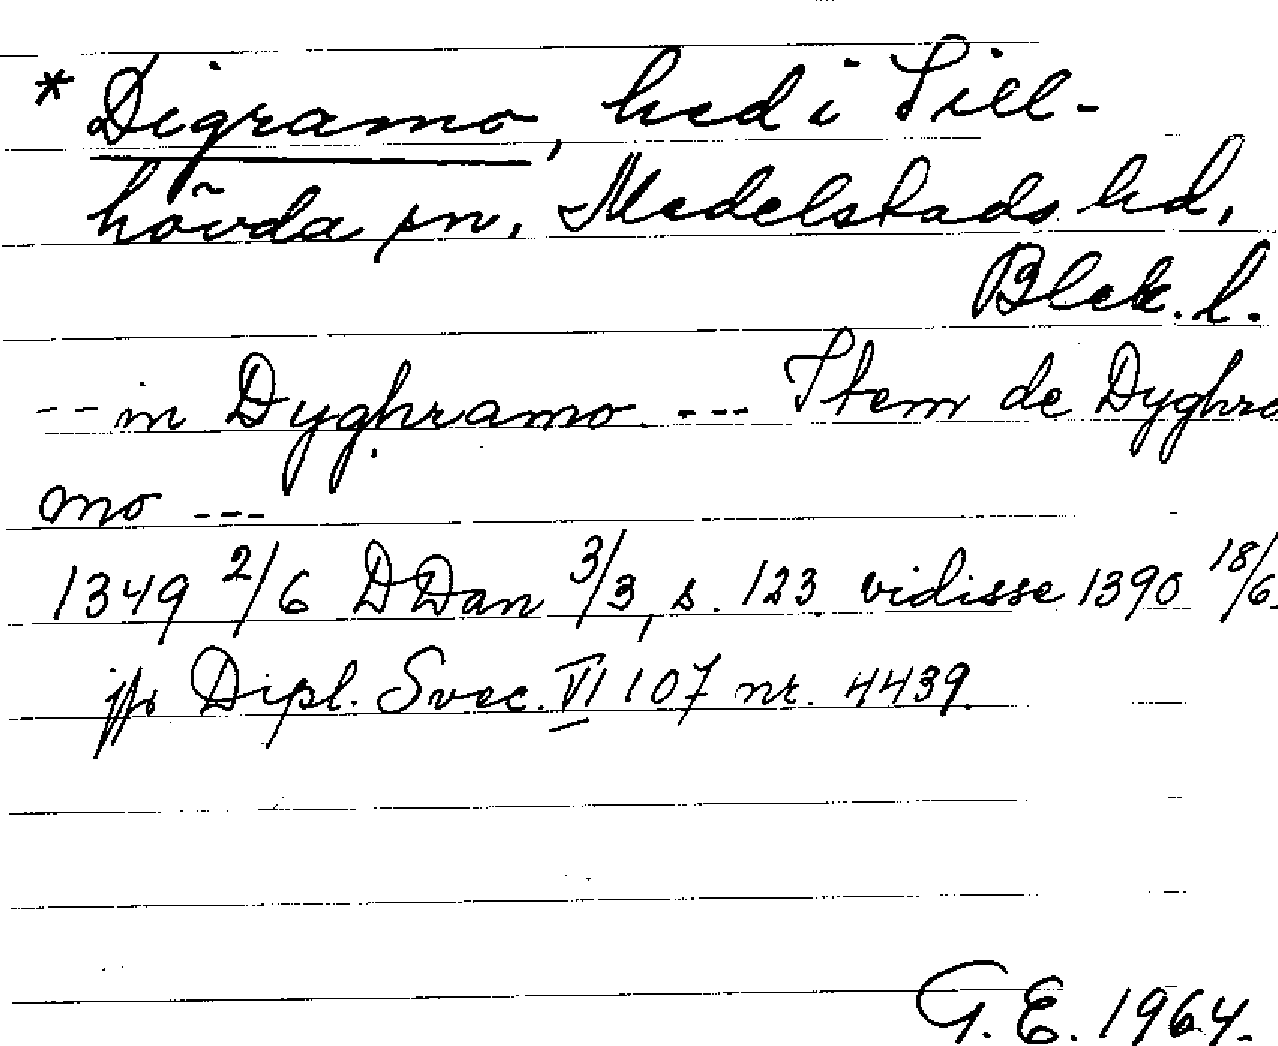 * Digramo, hed i Till-
hövda sn. Medelstads hd,
Blek. l.
-- in Dyghramo --- Item de Dyghra
mo ---
1349 2/6 DDan 3/3, s. 123 vidisse 1390 18/6.
jfr Dipl. Svec. VI 107 nr. 4439.
G. E. 1964.